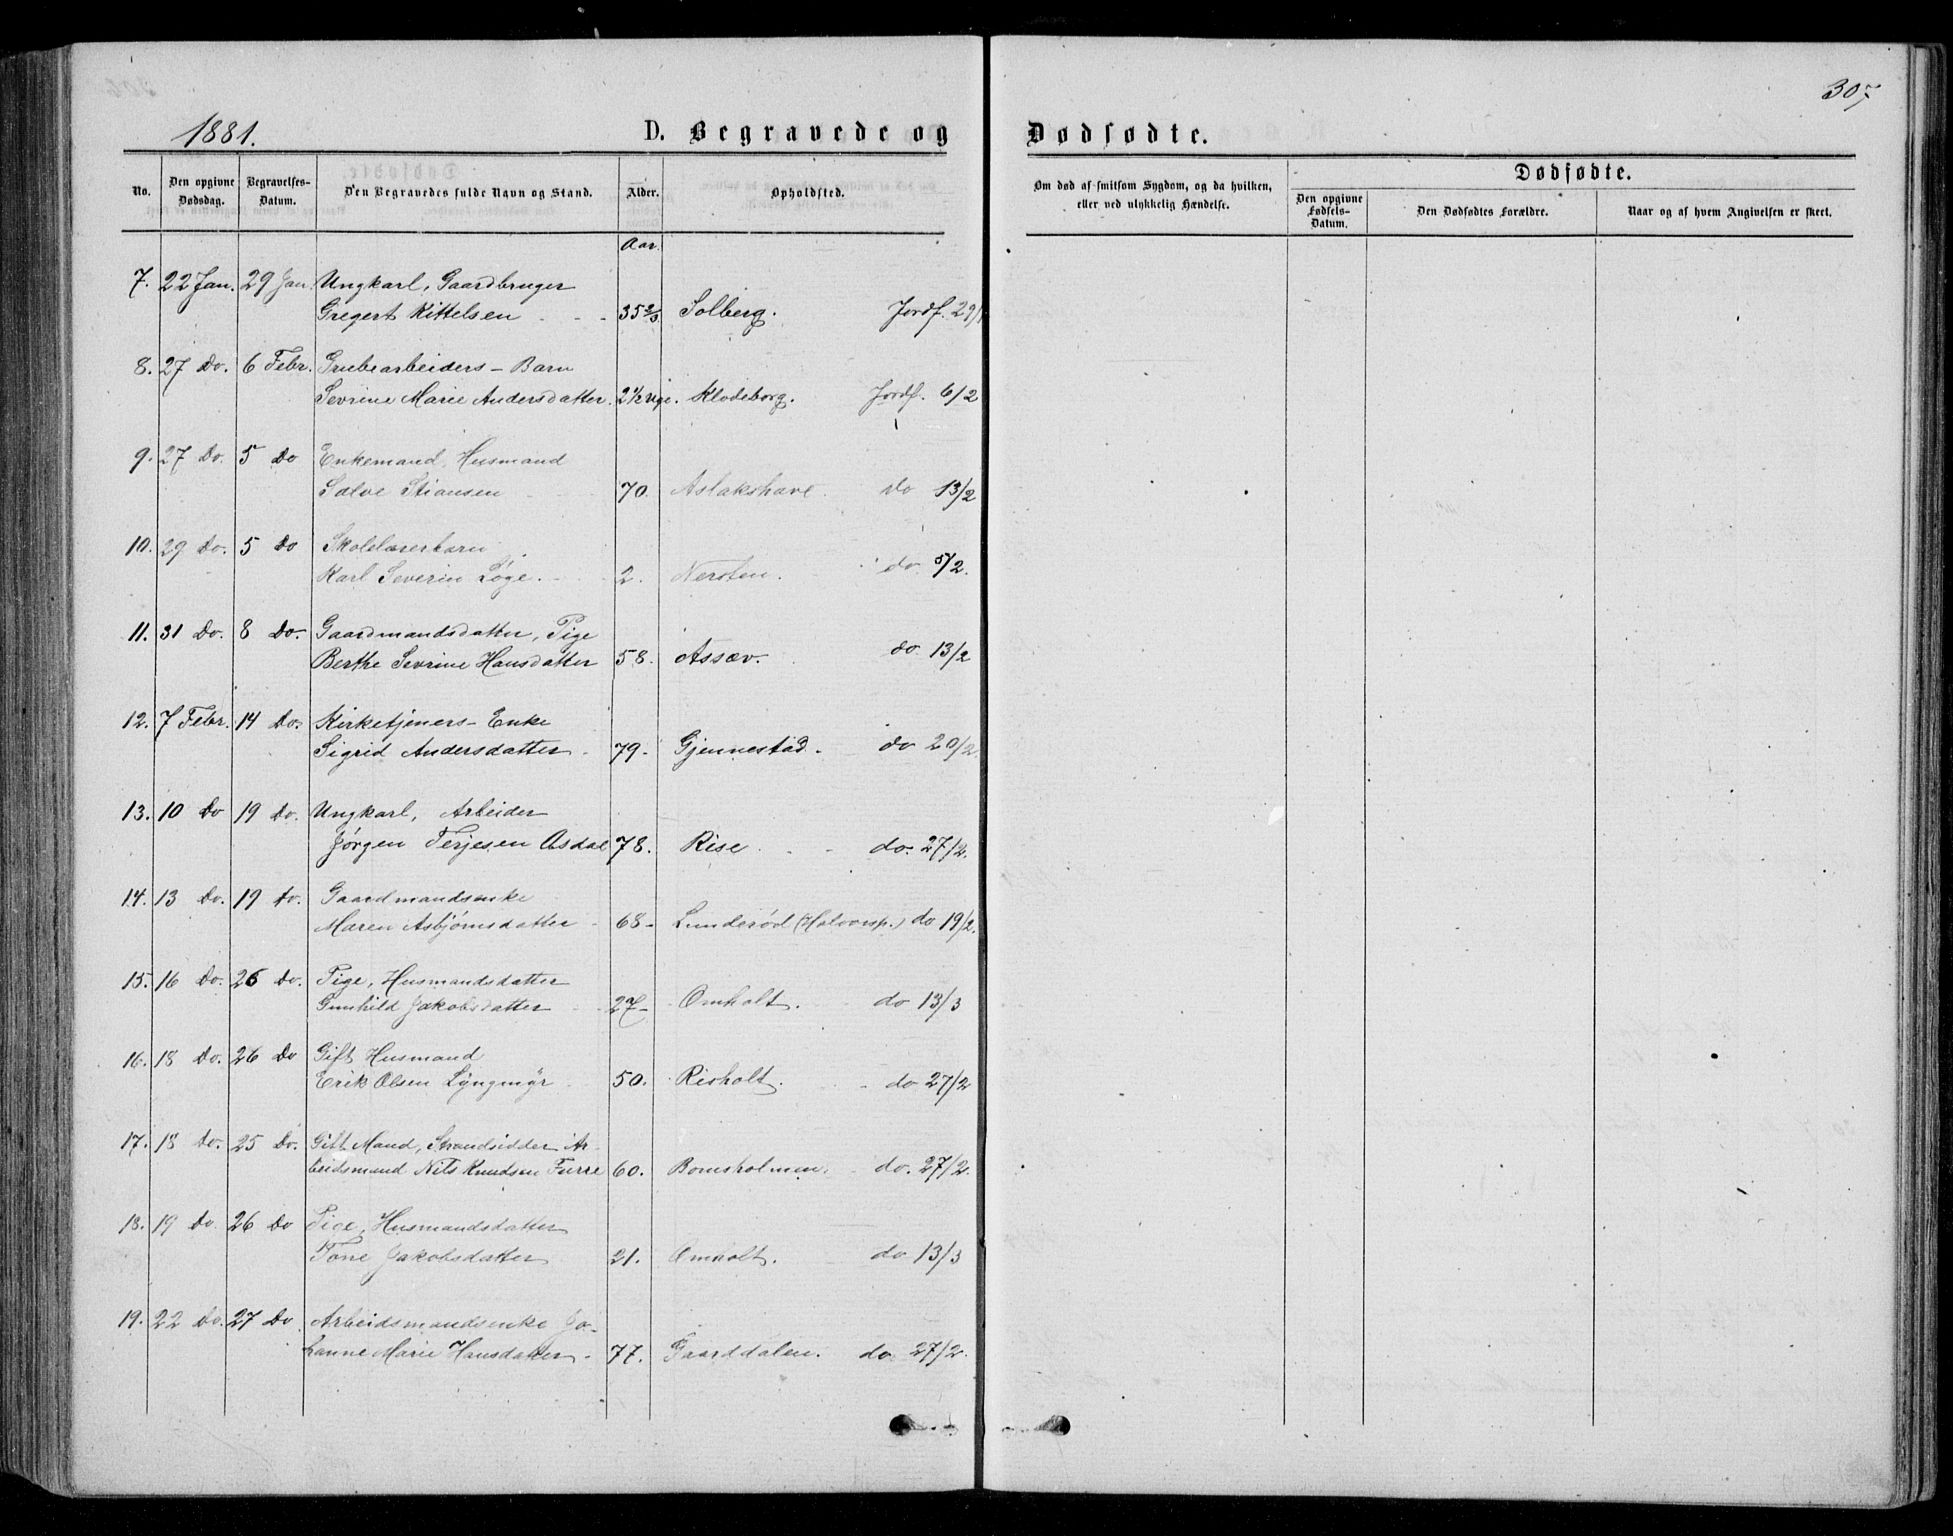 307
1881.
D. Begravede og Dødfødte.
No.
Den opgivne Dødsdag.
Begravelses-Datum.
Den Begravedes fulde Navn og Stand.
Alder.
Opholdsted.
Om død af smitsom Sygdom, og da hvilken,
eller ved ulykkelig Hændelse.
Dødfødte.
Den opgivne Fødsels-Datum.
Den Dødfødtes Forældre.
Naar og af hvem Angivelsen er skeet.
Aar.
7. 22 Jan. 29 Jan. Ungkarl, Gaardbruger
Gregert Kittelsen 35 2/3 Solberg. Jordf. 29/1
8. 27 Do. 6 Febr. Grubearbeiders-Barn
Sevrine Marie Andersdatter. 2 1/2 Uge. Klodeborg. Jordf. 6/2
9. 27 Do. 5 Do Enkemand, Husmand
Salve Stiansen 70. Aslakshave. Do 13/2
10. 29 Do. 5 Do Skolelærerbarn
Karl Severin Løge. 2. Nersten. do. 5/2.
11. 31 Do. 8 Do. Gaardmandsdatter, Pige
Berthe Sevrine Hansdatter 58. Assæv. do 13/2
12. 7 Febr. 14 Do. Kirketjeners-Enke
Sigrid Andersdatter 79. Gjennestad. do 20/2.
13. 10 Do 19 Do. Ungkarl, Arbeider
Jørgen Terjesen Asdal 78. Rise. do. 27/2.
14. 13 Do. 19 Do. Gaardmandsenke
Maren Asbjørnsdatter 68- Lunderød (Halvorsp.) do 19/2.
15. 16 Do. 26 Do. Pige, Husmandsdatter
Gunhild Jakobsdatter 27- Omholt. do 13/3
16. 18 Do. 26 Do Gift Husmand
Erik Olsen Lyngmyr 50. Risholt. do 27/2
17. 18 Do. 25 Do. Gift Mand, Strandsidder Ar-
beidsmand Nils Knudsen Furre 60. Bomsholmen. do. 27/2.
18. 19 Do 26 Do Pige, Husmandsdatter
Tone Jakobsdatter 21. Omholt. do 13/3
19. 22 Do. 27 Do Arbeidsmandsenke Jo-
hanne Marie Hansdatter. 77. Gaarddalen. do. 27/2.